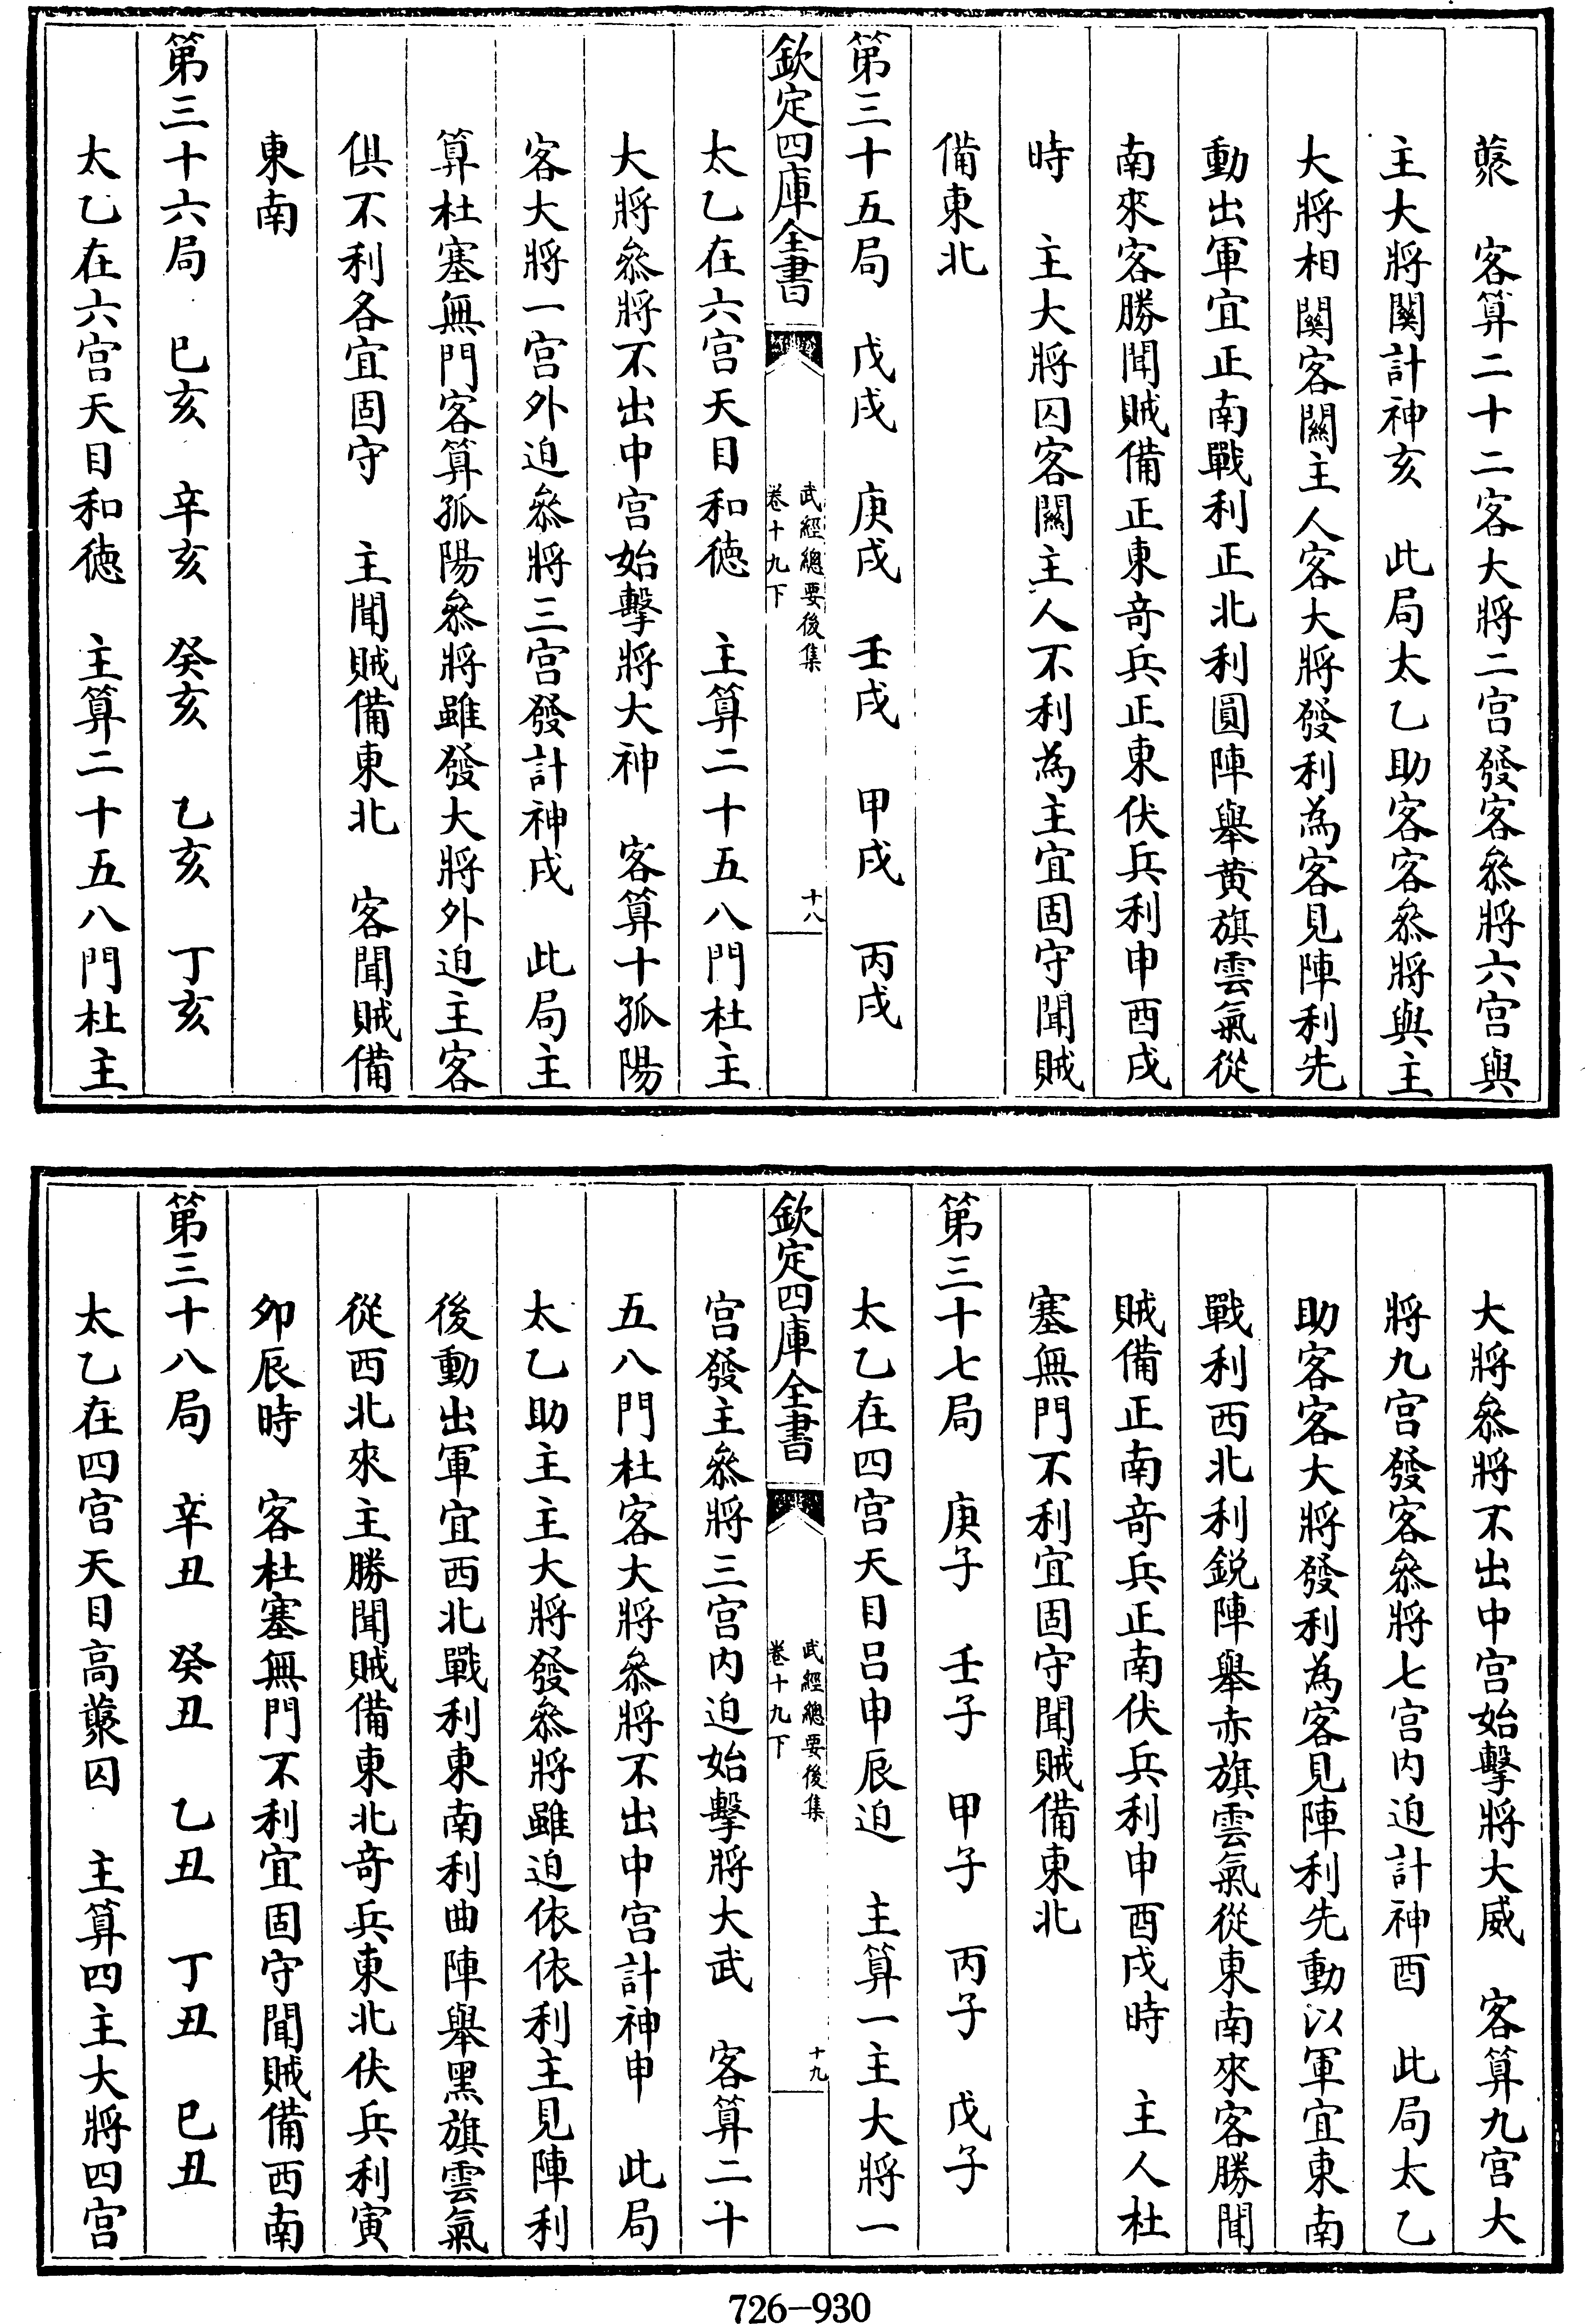 藂　客算二十二客大將二宫發客叅將六宫與
主大將關計神亥　此局太乙助客客叅將與主
大將相關客關主人客大將發利為客見陣利先
動出軍宜正南戰利正北利圓陣舉黄旗雲氣從
南來客勝聞賊備正東竒兵正東伏兵利申酉戌
時　主大將囚客關主人不利為主宜固守聞賊
備東北
第三十五局　戊戌　庚戌　壬戌　甲戌　丙戌
欽定四庫全書
武經總要後集
卷十九下
十八
太乙在六宫天目和徳　主算二十五八門杜主
大將叅將不出中宫始擊將大神　客算十孤陽
客大將一宫外迫叅將三宫發計神戌　此局主
算杜塞無門客算孤陽叅將雖發大將外迫主客
俱不利各宜固守　主聞賊備東北　客聞賊備
東南
第三十六局　巳亥　辛亥　癸亥　乙亥　丁亥
太乙在六宫天目和徳　主算二十五八門杜主
大將叅將不出中宫始擊將大威　客算九宫大
將九宫發客叅將七宫内迫計神酉　此局太乙
助客客大將發利為客見陣利先動以軍宜東南
戰利西北利鋭陣舉赤旗雲氣從東南來客勝聞
賊備正南竒兵正南伏兵利申酉戌時　主人杜
塞無門不利宜固守聞賊備東北
第三十七局　庚子　壬子　甲子　丙子　戊子
太乙在四宫天目吕申辰迫　主算一主大將一
欽定四庫全書
武經總要後集
卷十九下
十九
宫發主叅將三宫内迫始擊將大武　客算二十
五八門杜客大將叅將不出中宫計神申　此局
太乙助主主大將發叅將雖迫依依利主見陣利
後動出軍宜西北戰利東南利曲陣舉黑旗雲氣
從西北來主勝聞賊備東北竒兵東北伏兵利寅
夘辰時　客杜塞無門不利宜固守聞賊備西南
第三十八局　辛丑　癸丑　乙丑　丁丑　巳丑
太乙在四宫天目高藂囚　主算四主大將四宫
726-930